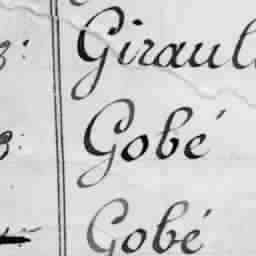 3: Giraul
3: Gobé
Gobé